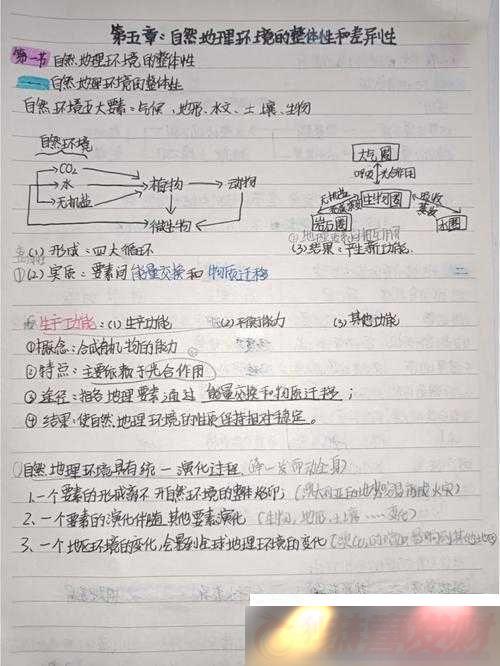 第五章：自然地理环境的整体性和差异性
第一节 自然地理环境的整体性
一 自然地理环境的整体性
自然环境五大要素：气候、地形、水文、土壤、生物
自然环境
CO₂
水
无机盐
植物
动物
微生物
大气圈
呼吸 光合作用
无机盐
生物圈
吸收
蒸发
岩石圈
水圈
(1) 形成：四大循环
(3) 结果：产生新功能.
①(2) 实质：要素间能量交换和物质迁移
生产功能：(1) 生产功能 (2) 平衡能力 (3) 其他功能
①概念：合成有机物的能力
②特点：主要依赖于光合作用
③途径：相各地理要素通过 能量交换和物质迁移；
④结果：使自然地理环境的性质保持相对稳定。
自然地理环境具有统一演化过程 (牵一发而动全身)
1、一个要素的形成离不开自然环境的整体烙印；
2、一个要素的演化伴随其他要素演化 (生物、地形、土壤……变化)
3、一个地区环境的变化，会影到全球地理环境的变化